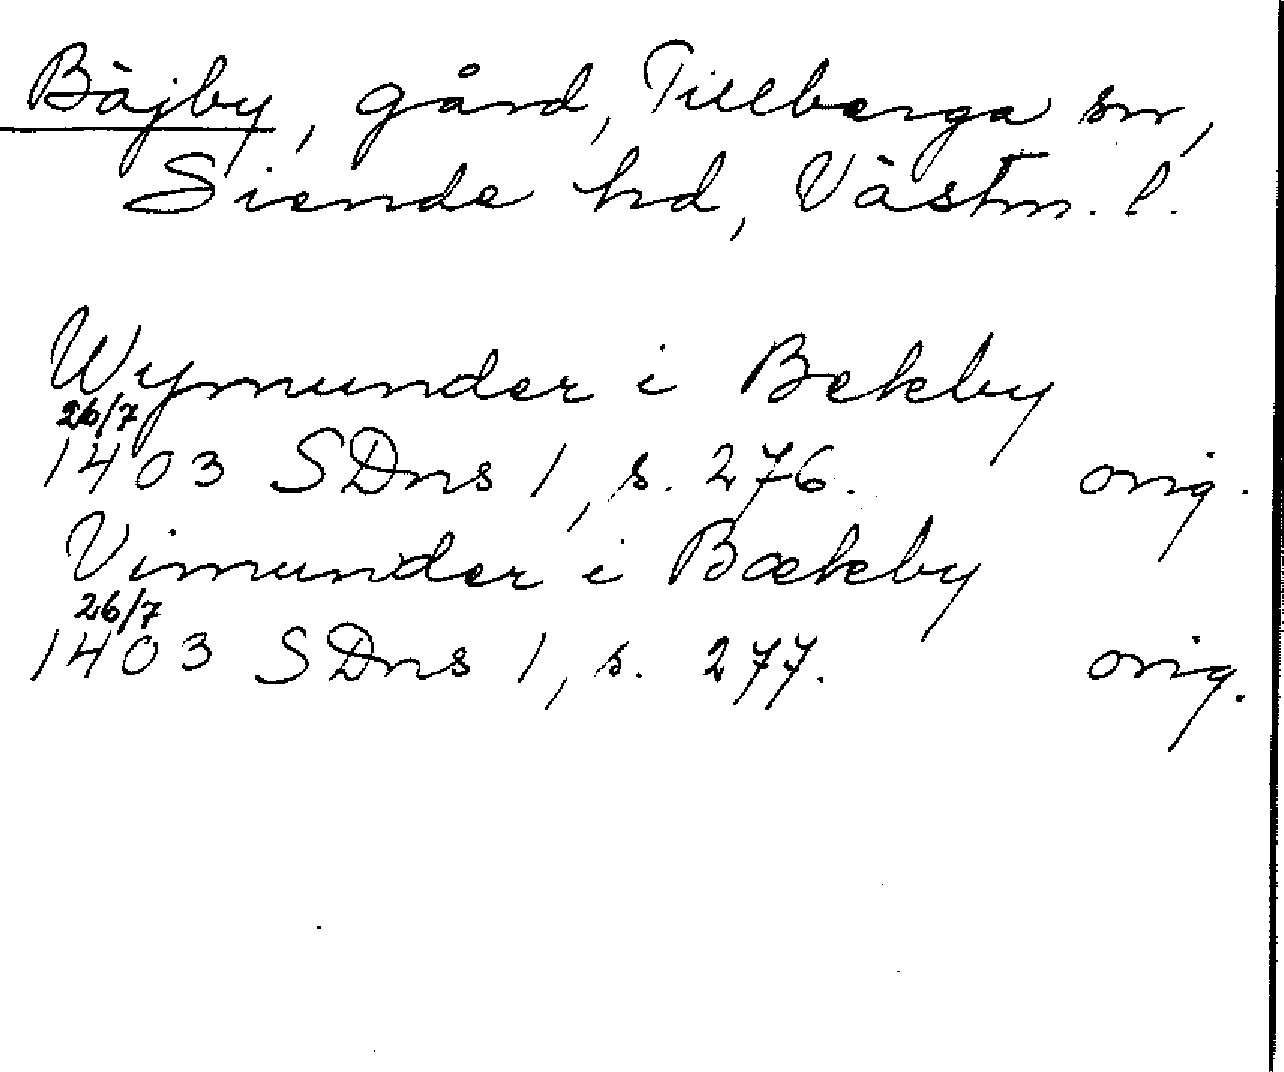 Bäjby, gård, Tillberga sn,
Siende hd, Västm. l.
Wymunder i Bekby
26/7
1403 SDns 1, s. 276. orig.
Vimunder i Bækby
26/7
1403 SDns 1, s. 277. orig.